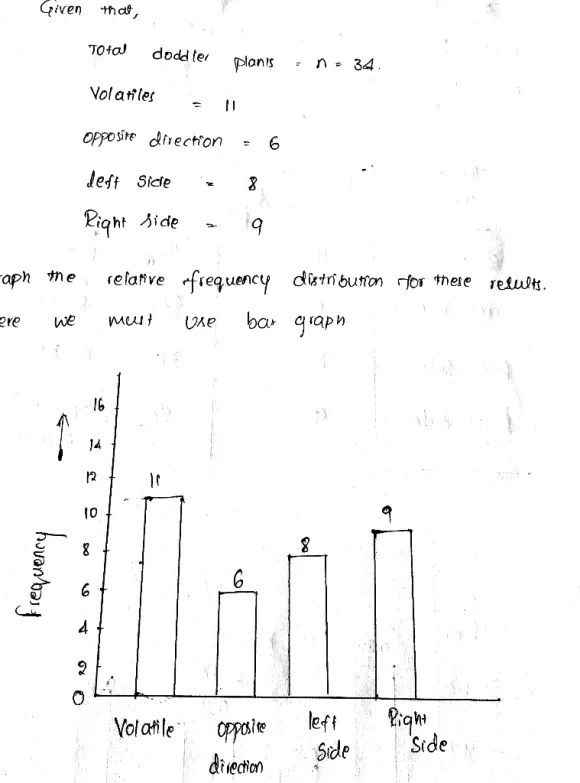 Given that,
Total doddler plants = n = 34.
Volatiles = 11
opposite direction = 6
left Side = 8
Right side = 9
raph the relative frequency distribution for these results.
ere we must use bar graph
16
14
12
10
8
6
4
2
0
frequency
11
6
8
9
Volatile opposite direction left Side Right Side